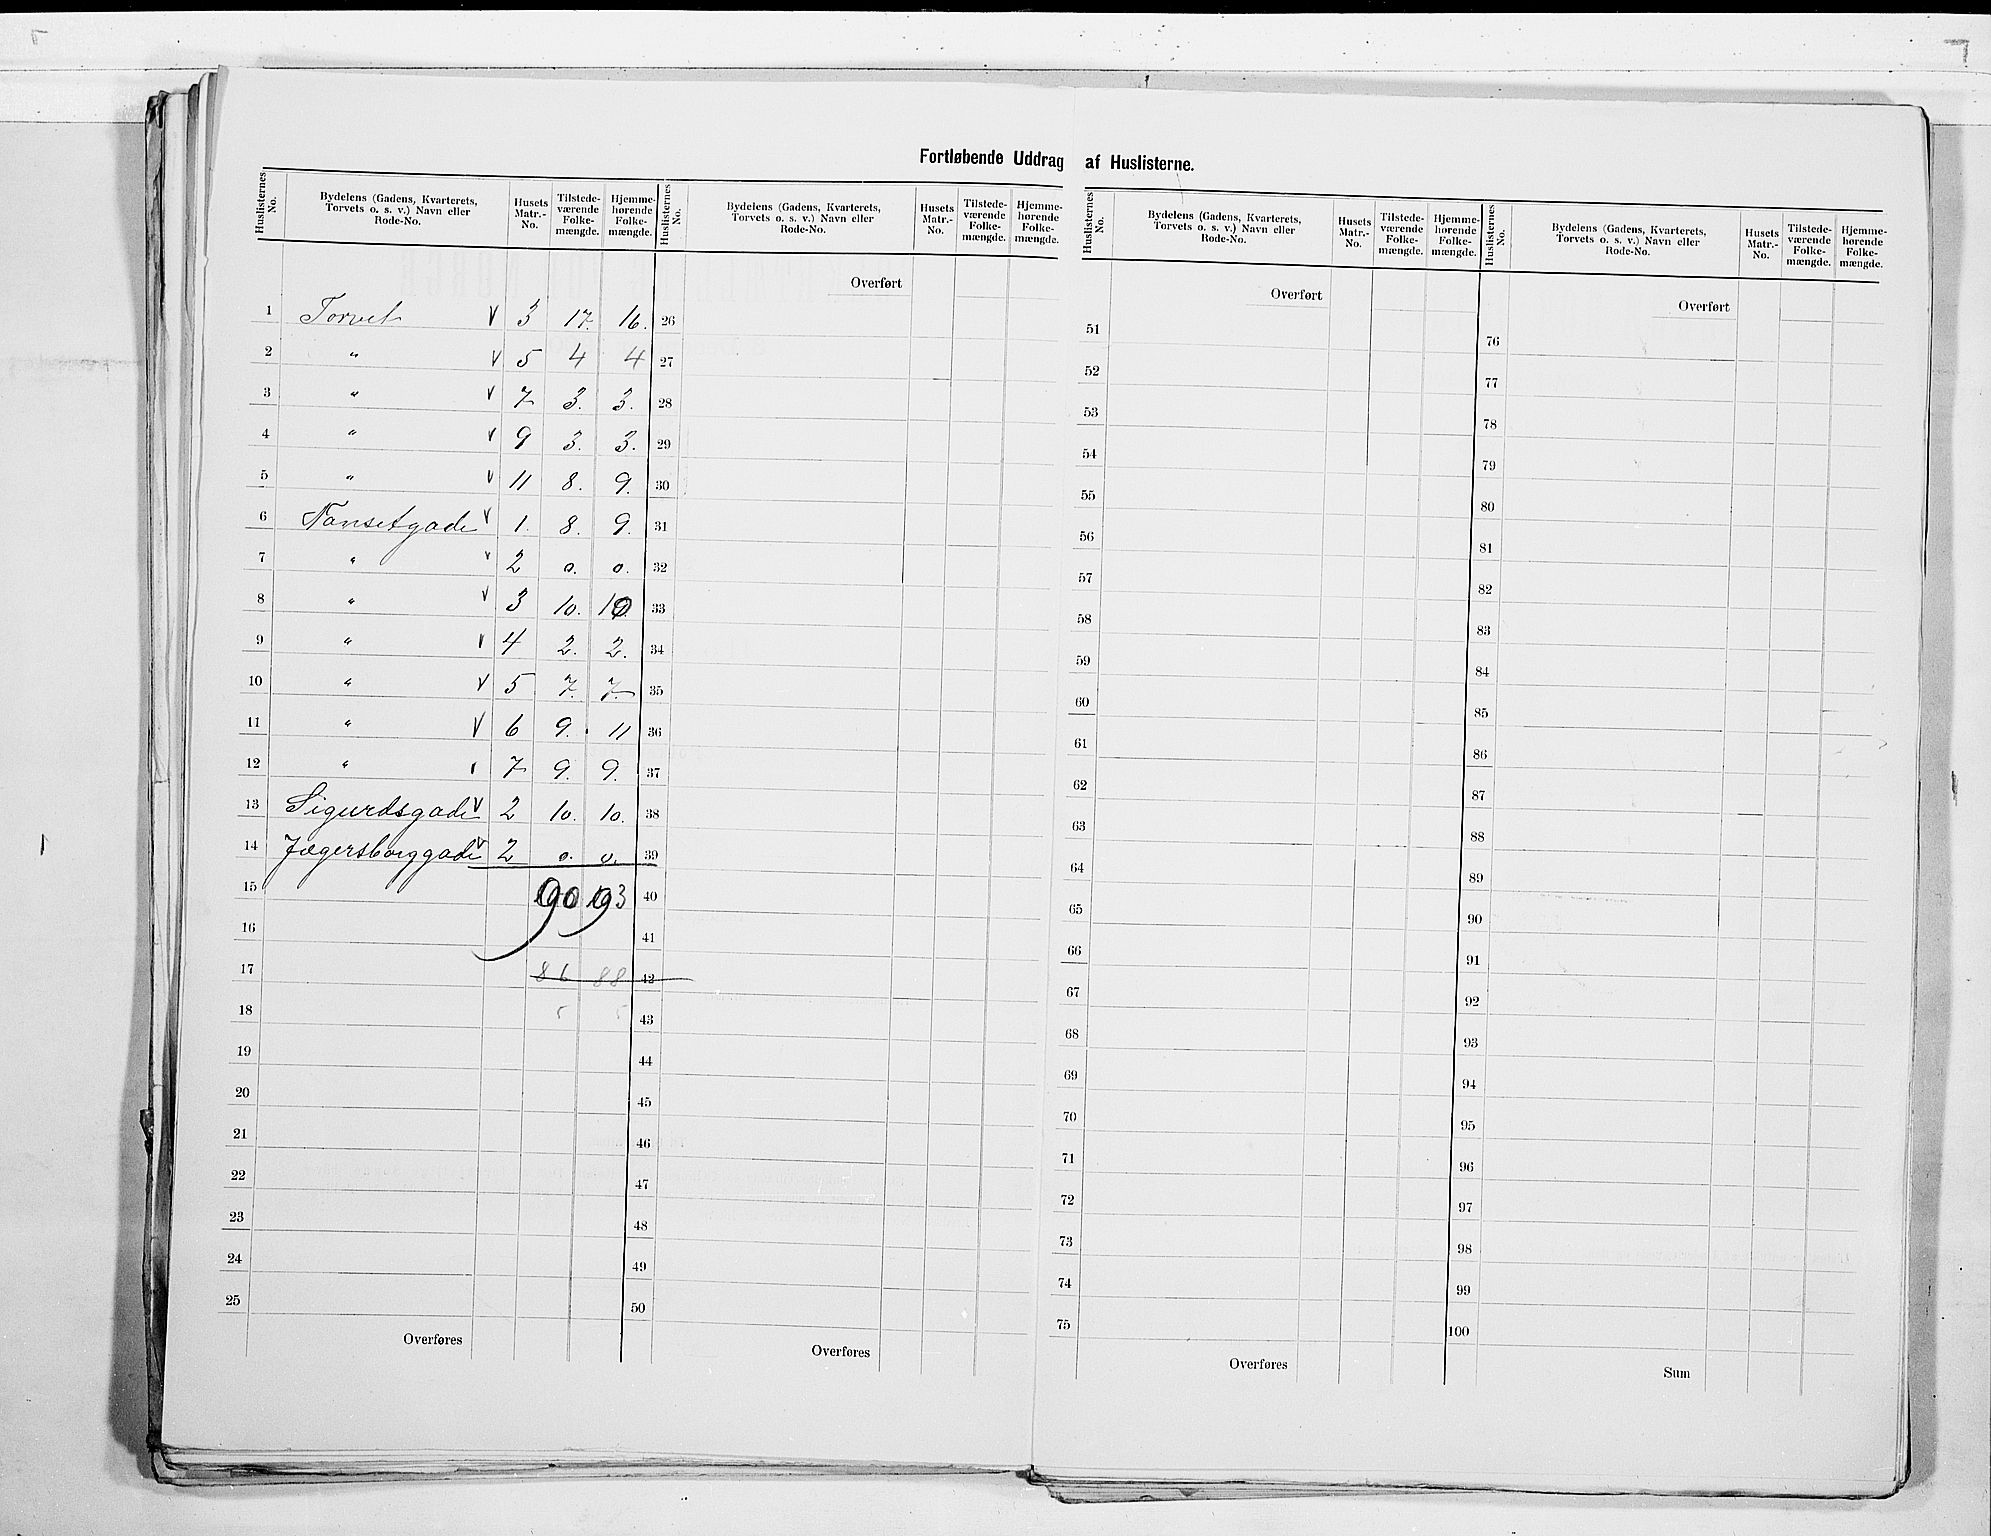 Fortløbende Uddrag af Huslisterne.
Huslisternes No. Bydelens (Gadens, Kvarterets, Torvets o. s. v.) Navn eller Rode-No. Husets Matr.-No. Tilstedeværende Folkemængde. Hjemmehørende Folkemængde.
1 Torvet V 3 17. 16.
2 " V 5 4 4
3 " V 7 3. 3.
4 " V 9 3. 3.
5 " V 11 8. 9.
6 Nansetgade V 1. 8. 9.
7 " V 2 0. 0.
8 " V 3 10. 10.
9 " V 4 2. 2.
10 " V 5 7. 7.
11 " V 6 9. 11
12 " 7 9. 9.
13 Sigurdsgade V 2 10. 10.
14 Jægersborggade V 2 0. 0.
15 90 93
16
17 86 88
18 5 5
19
20
21
22
23
24
25
Overføres
Huslisternes No. Bydelens (Gadens, Kvarterets, Torvets o. s. v.) Navn eller Rode-No. Husets Matr.-No. Tilstedeværende Folkemængde. Hjemmehørende Folkemængde.
Overført
26
27
28
29
30
31
32
33
34
35
36
37
38
39
40
41
42
43
44
45
46
47
48
49
50
Overføres
Huslisternes No. Bydelens (Gadens, Kvarterets, Torvets o. s. v.) Navn eller Rode-No. Husets Matr.-No. Tilstedeværende Folkemængde. Hjemmehørende Folkemængde.
Overført
51
52
53
54
55
56
57
58
59
60
61
62
63
64
65
66
67
68
69
70
71
72
73
74
75
Overføres
Huslisternes No. Bydelens (Gadens, Kvarterets, Torvets o. s. v.) Navn eller Rode-No. Husets Matr.-No. Tilstedeværende Folkemængde. Hjemmehørende Folkemængde.
Overført
76
77
78
79
80
81
82
83
84
85
86
87
88
89
90
91
92
93
94
95
96
97
98
99
100
Sum